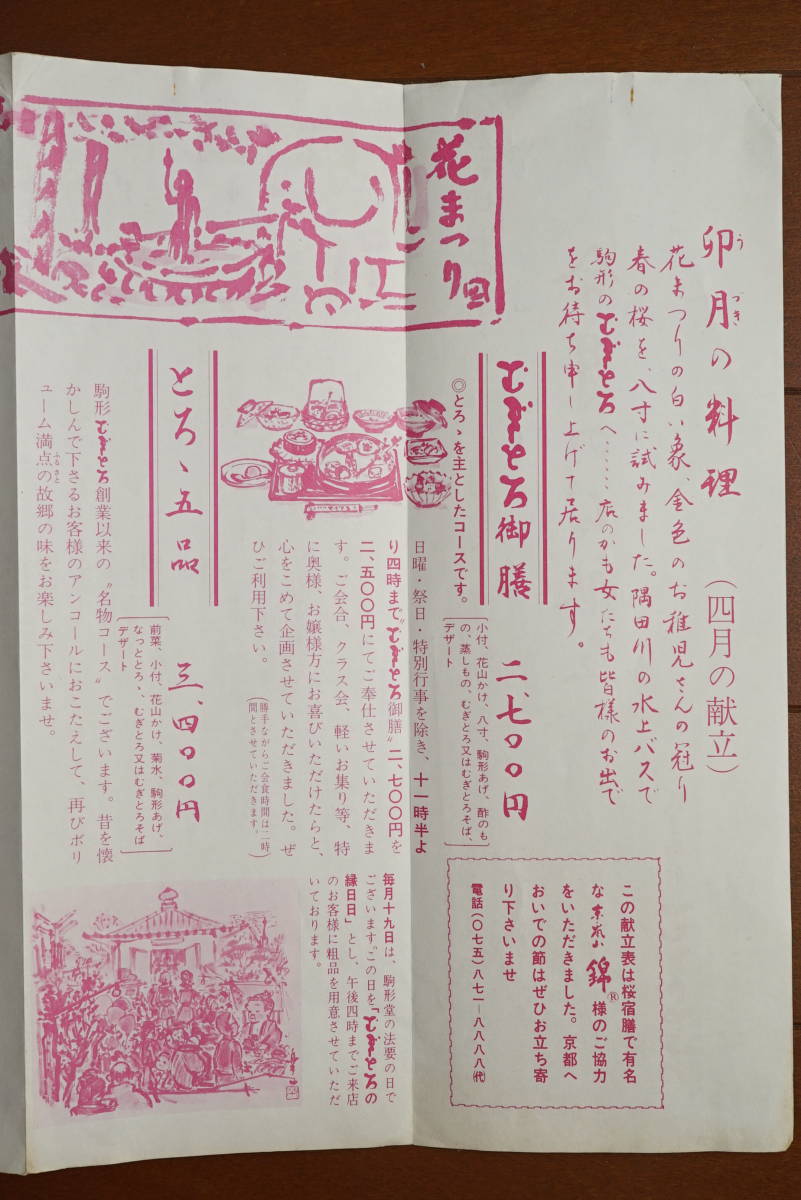 卯月の料理（四月の献立）
うづき
花まつりの白い象、金色のお稚児さんの冠り
春の桜を、八寸に試みました。隅田川の水上バスで
駒形のむぎとろへ……店のかも女たちも皆様のお出で
をお待ち申し上げて居ります。
この献立表は桜宿膳で有名
な 錦® 様のご協力
をいただきました。京都へ
おいでの節はぜひお立ち寄
り下さいませ
電話(〇七五)八七一ー八八八八(代)
花まつり
むぎとろ御膳 二、七〇〇円
小付、花山かけ、八寸、駒形あげ、酢のも
の、蒸しもの、むぎとろ又はむぎとろそば、
デザート
◎とろゝを主としたコースです。
日曜・祭日・特別行事を除き、十一時半よ
り四時まで〝むぎとろ御膳〟二、七〇〇円を
二、五〇〇円にてご奉仕させていただきま
す。ご会合、クラス会、軽いお集り等、特
に奥様、お嬢様方にお喜びいただけたらと、
心をこめて企画させていただきました。ぜ
ひご利用下さい。
(勝手ながらご会食時間は二時
間とさせていただきます。)
とろゝ五品 三、四〇〇円
前菜、小付、花山かけ、菊水、駒形あげ、
なっととろゝ、むぎとろ又はむぎとろそば
デザート
駒形むぎとろ創業以来の〝名物コース〟でございます。昔を懐
かしんで下さるお客様のアンコールにおこたえして、再びボリ
ューム満点の故郷の味をお楽しみ下さいませ。
ふるさと
毎月十九日は、駒形堂の法要の日で
ございます。この日を「むぎとろの
縁日日」とし、午後四時までご来店
のお客様に粗品を用意させていただ
いております。